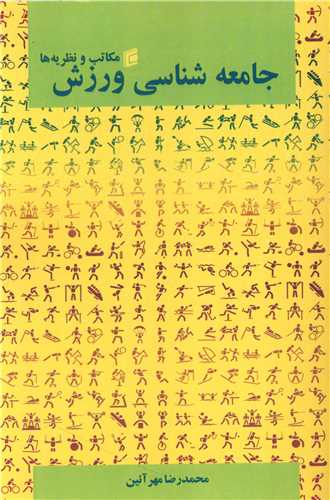 مکاتب و نظریه‌ها
جامعه شناسی ورزش
محمدرضا مهرآئین